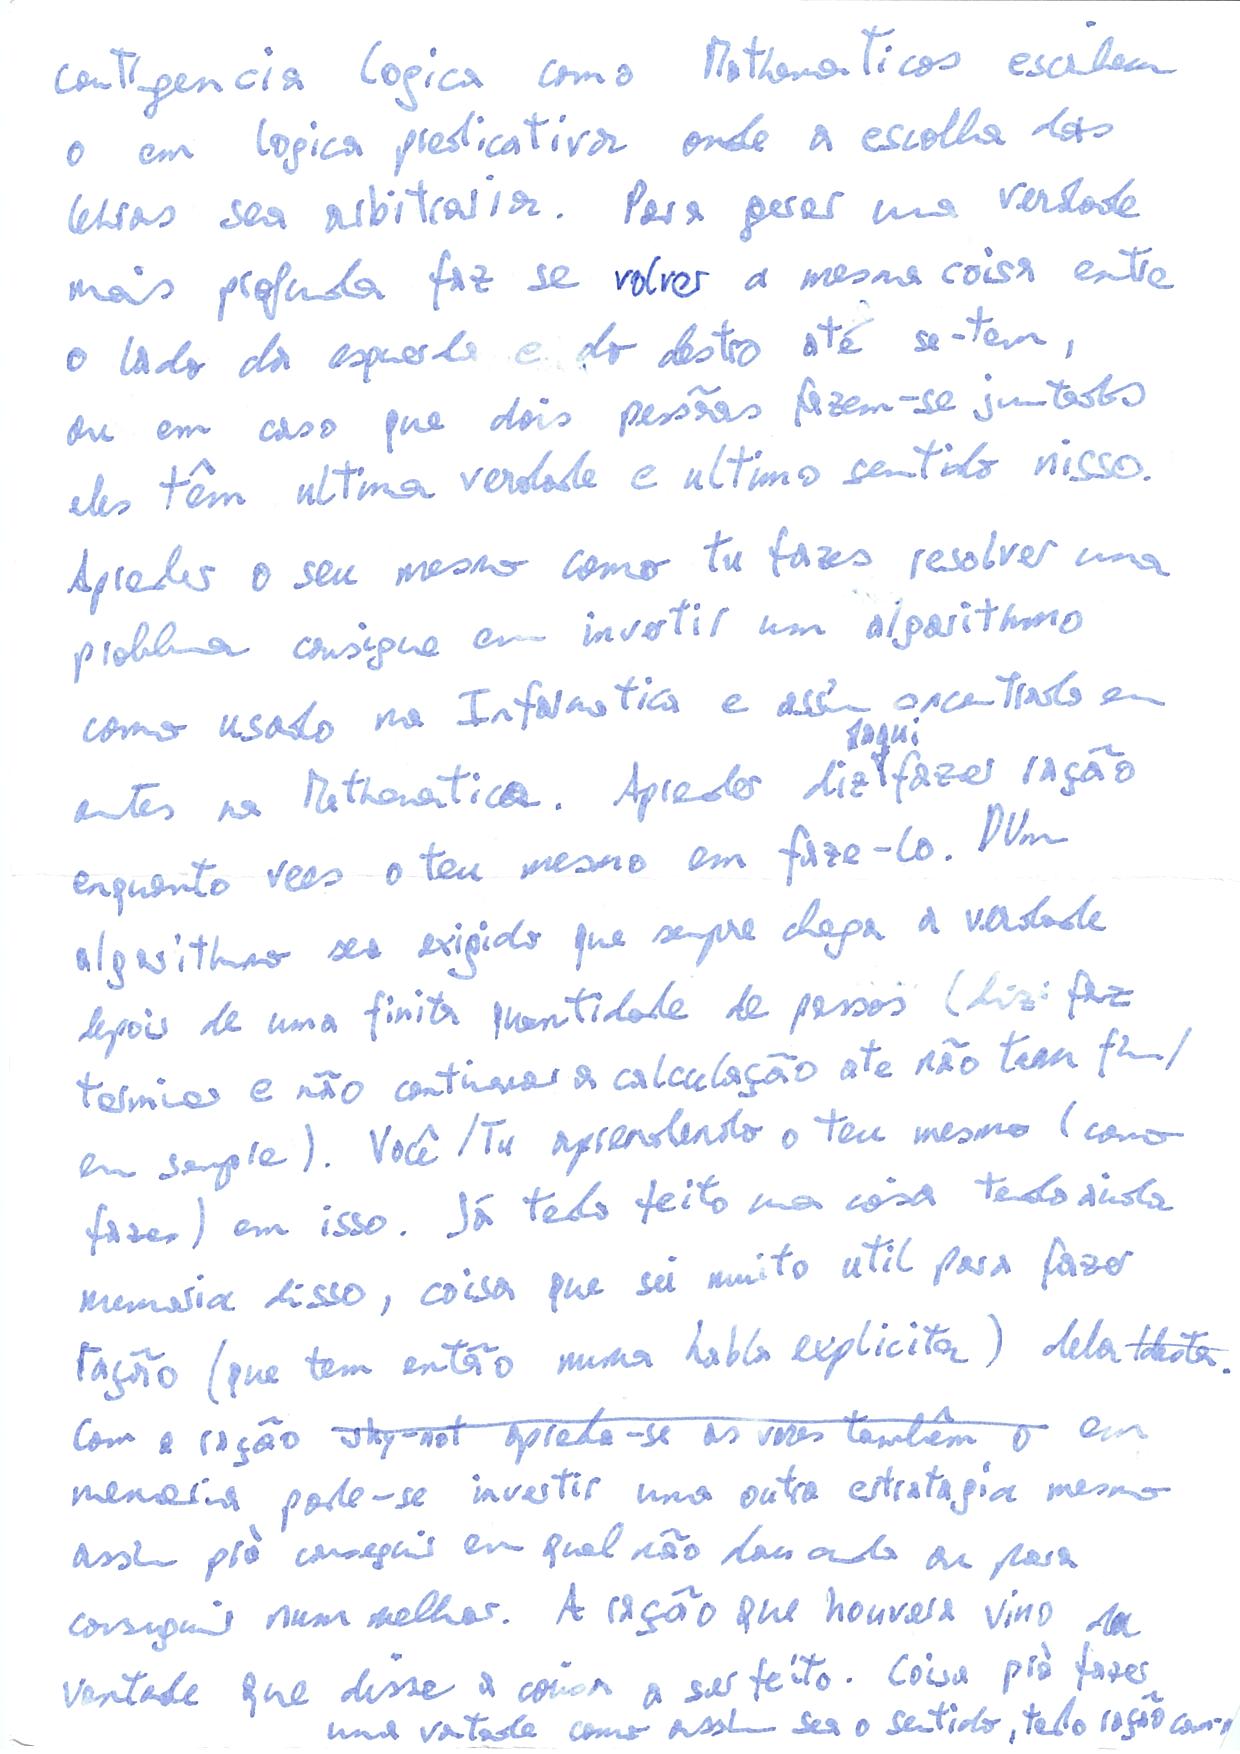 contigencia logica como Mathematicos escribem
o em logica predicativa onde a escolha das
letras sea arbitraria. Para gerar uma verdade
mais profunda faz se volver a mesma coisa entre
o lado da esquerda e do destro até se-tem,
ou em caso que dois pessõas fazem-se juntados
eles têm ultima verdade e ultimo sentido nisso.
Aprender o seu mesmo como tu fazes resolver uma
problema consigue em invertir um algorithmo
como usado na Informatica e assim encontrado em
antes na Mathematica. Aprender diz aqui fazer ração
enquanto vees o teu mesmo em faze-lo. DUm
algorithmo sea exigido que sempre chega a verdade
depois de uma finita quantidade de passos (diz: faz
terminar e não continuar a calculação ate não tem fim/
em sempre). Você/Tu aprendendo o teu mesmo (como
fazer) em isso. Já tendo feito uma coisa tendo ainda
memoria disso, coisa que sei muito util para fazer
ração (que tem então numa habla explicita) dela
Com a ração why-not aprenda-se as vezes também o em
memoria pode-se investir uma outra estratagia mesmo
assim prà conseguir em qual não ou para
conseguir num melhor. A ração que houvera vino da
vontade que disse a coisa a ser feito. Coisa prà fazer
uma vontade como assim sea o sentido, tendo ração